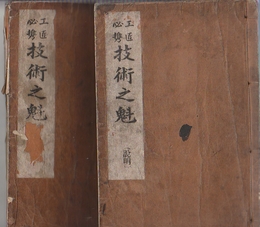 工匠必携
技術之魁
工匠必携
技術之魁